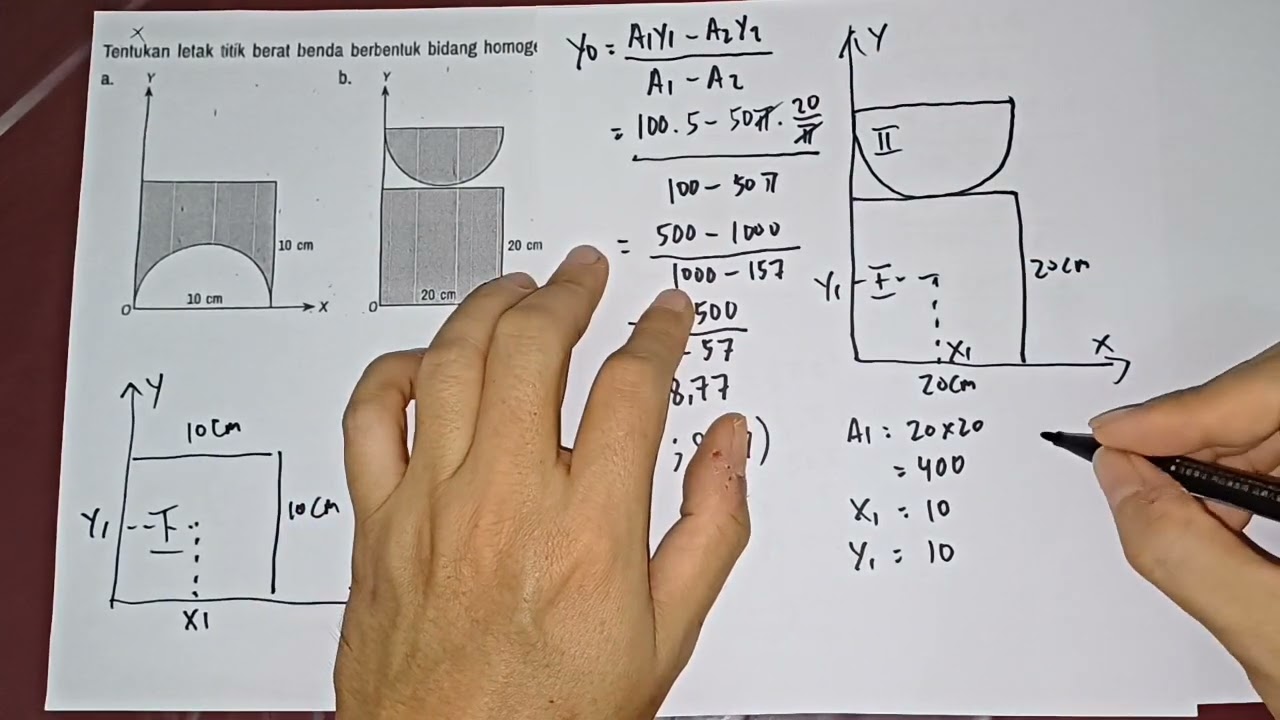 x
Tentukan letak titik berat benda berbentuk bidang
a.
Y
10 cm
10 cm
O
X
b.
Y
20 cm
20 cm
O
Y
10 cm
Y1
I
10 cm
X1
Y0 = A1Y1 - A2Y2 / A1 - A2
= 100 . 5 - 50π . 20/π
100 - 50π
= 500 - 1000
1000 - 157
500
- 57
8,77
;
)
Y
II
Y1
I
20 cm
X1
X
20 cm
A1 : 20 x 20
= 400
X1 : 10
Y1 : 10